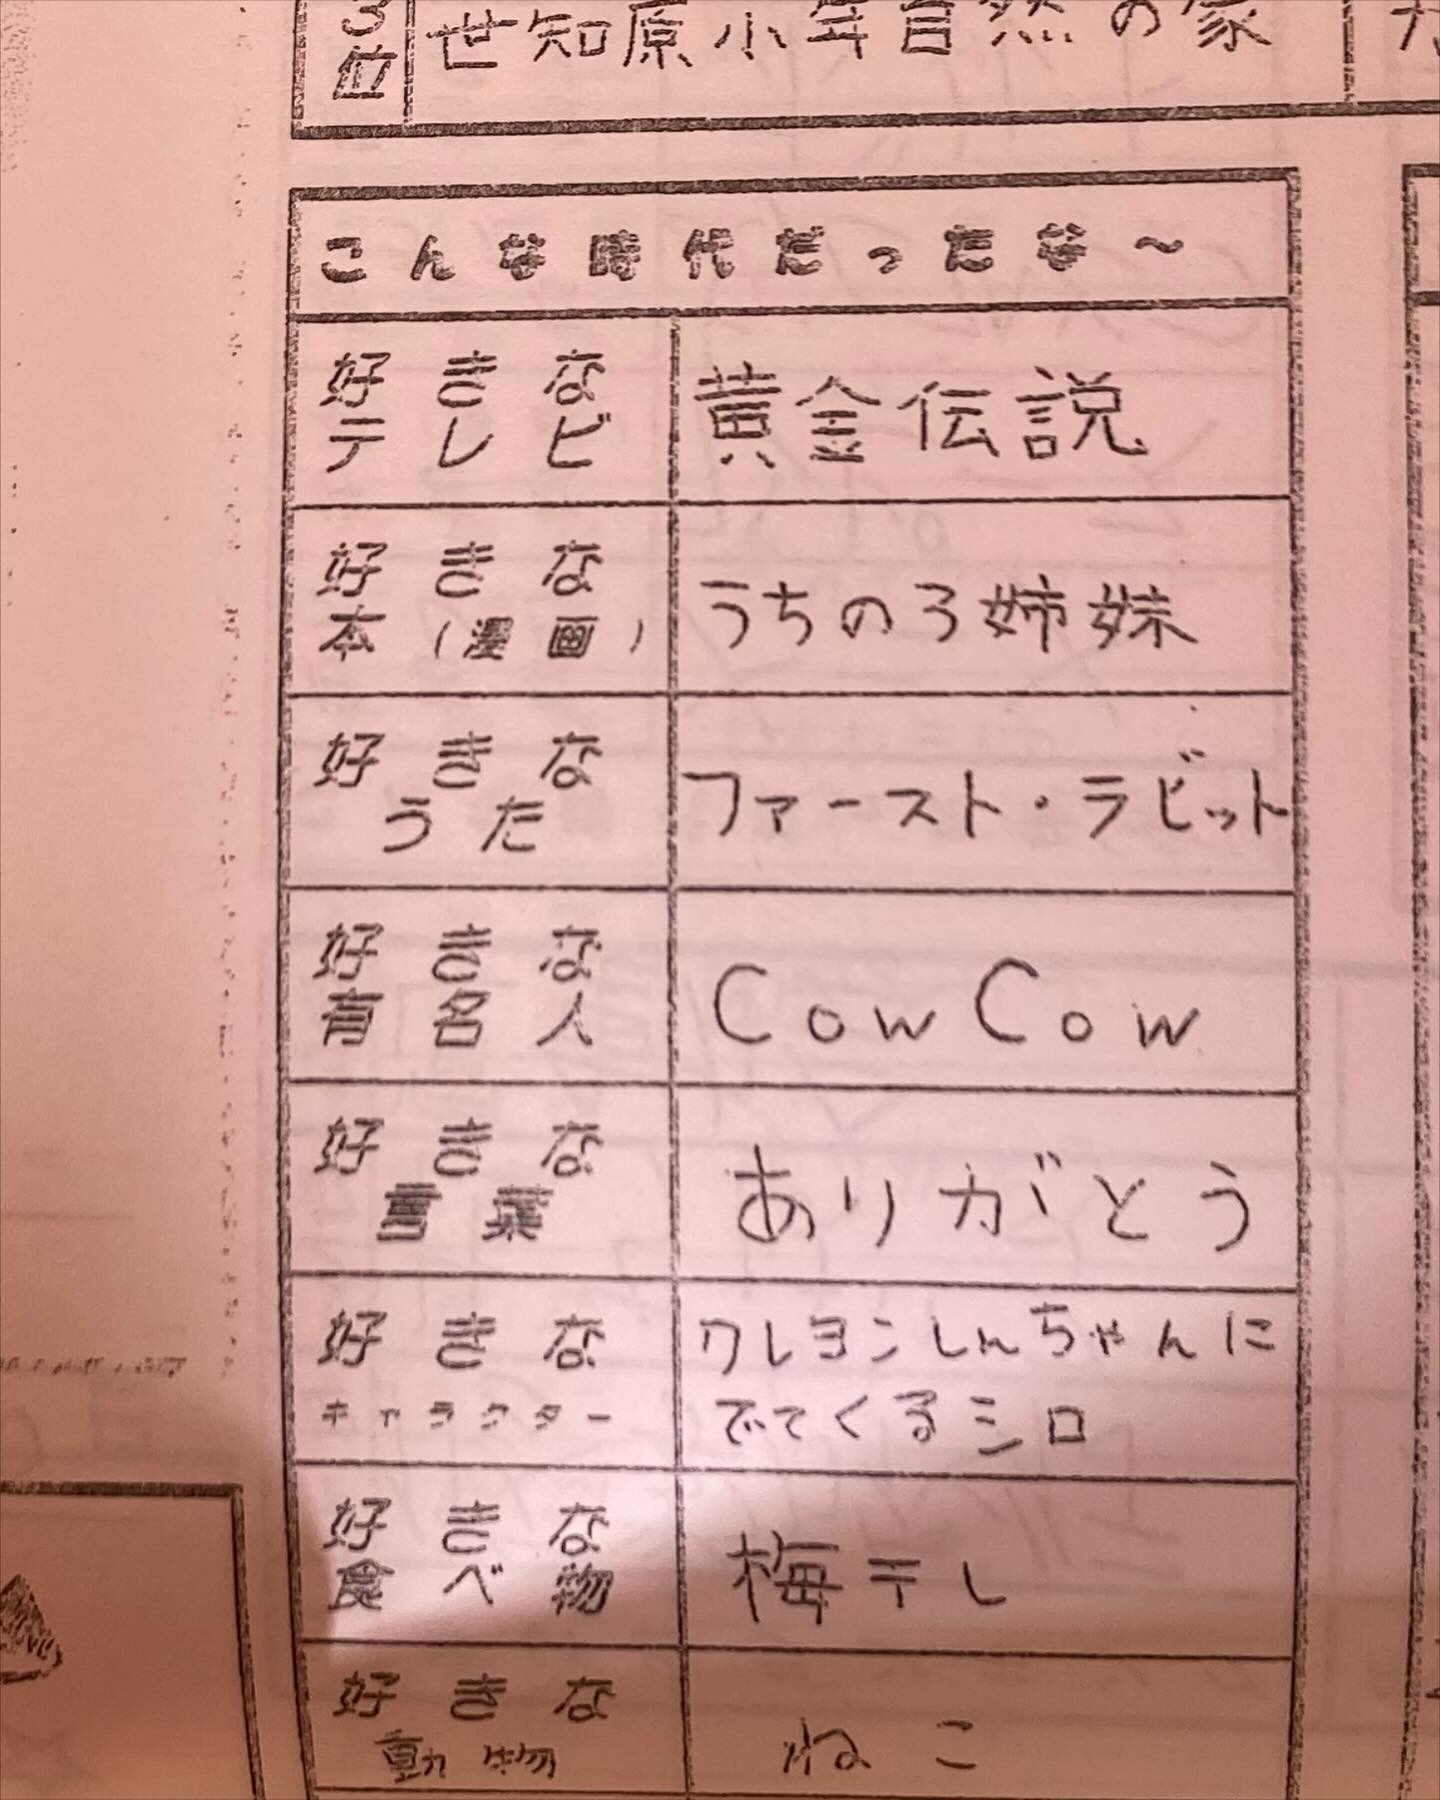 3位 世知原少年自然の家
こんな時代だったな～
好きな
テレビ
黄金伝説
好きな
本（漫画）
うちの3姉妹
好きな
うた
ファースト・ラビット
好きな
有名人
CowCow
好きな
言葉
ありがとう
好きな
キャラクター
クレヨンしんちゃんに
でてくるシロ
好きな
食べ物
梅干し
好きな
動物
ねこ